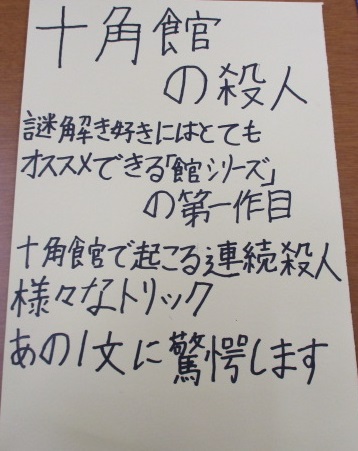 十角館
の殺人
謎解き好きにはとても
オススメできる「館シリーズ」
の第一作目
十角館で起こる連続殺人
様々なトリック
あの1文に驚愕します